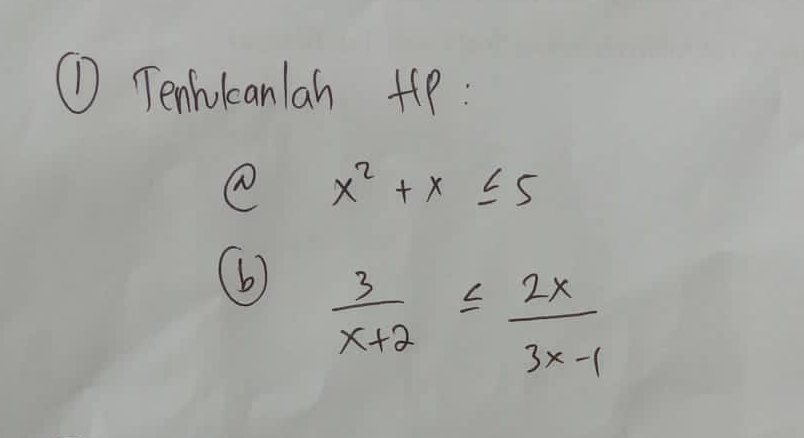 ① Tentukanlah HP :
ⓐ x² + x ≤ 5
ⓑ 3/(x+2) ≤ 2x/(3x-1)